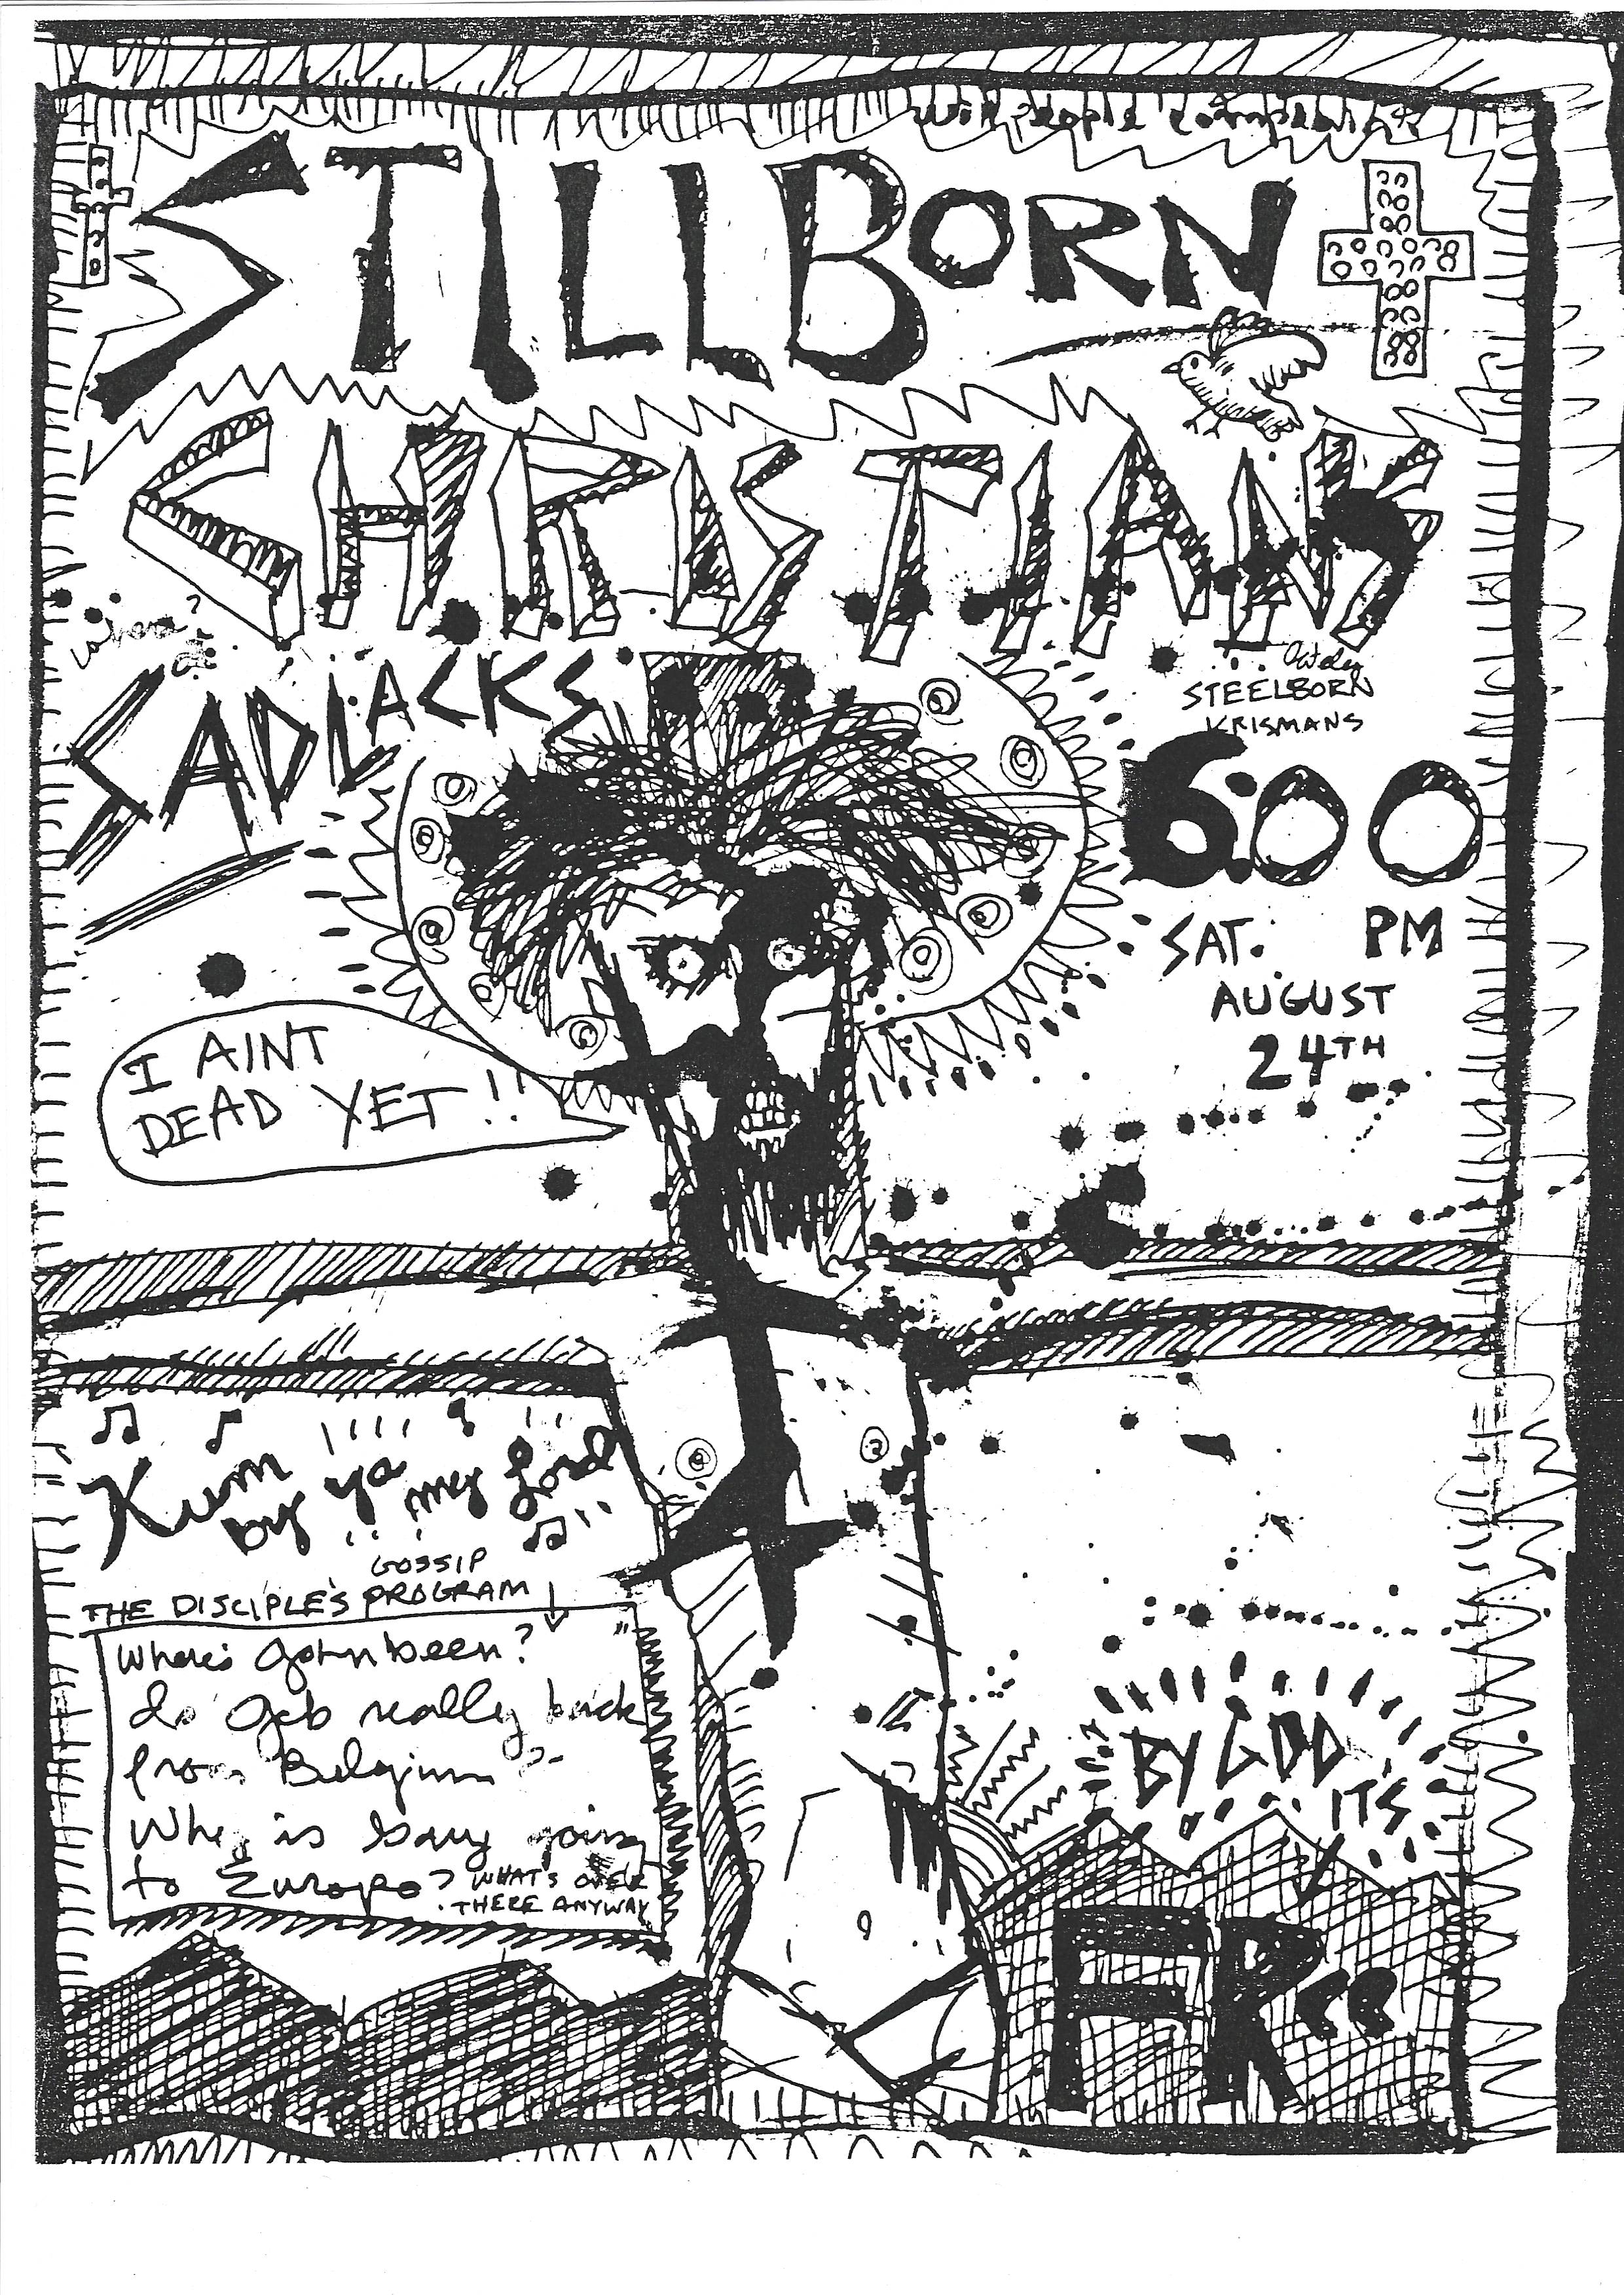 STILLBORN
CHRISTIANS
where?
SADLACKS
STEELBORN
KRISMANS
6:00
PM
SAT.
AUGUST
24TH
I AINT
DEAD YET!!
Kum by ya my Lord
GOSSIP
THE DISCIPLE'S PROGRAM
Where's John been?
Is Jeb really back
from Belgium?
Why is Gary going
to Europe? WHAT'S OVER
THERE ANYWAY
BY GOD
IT'S
FREE